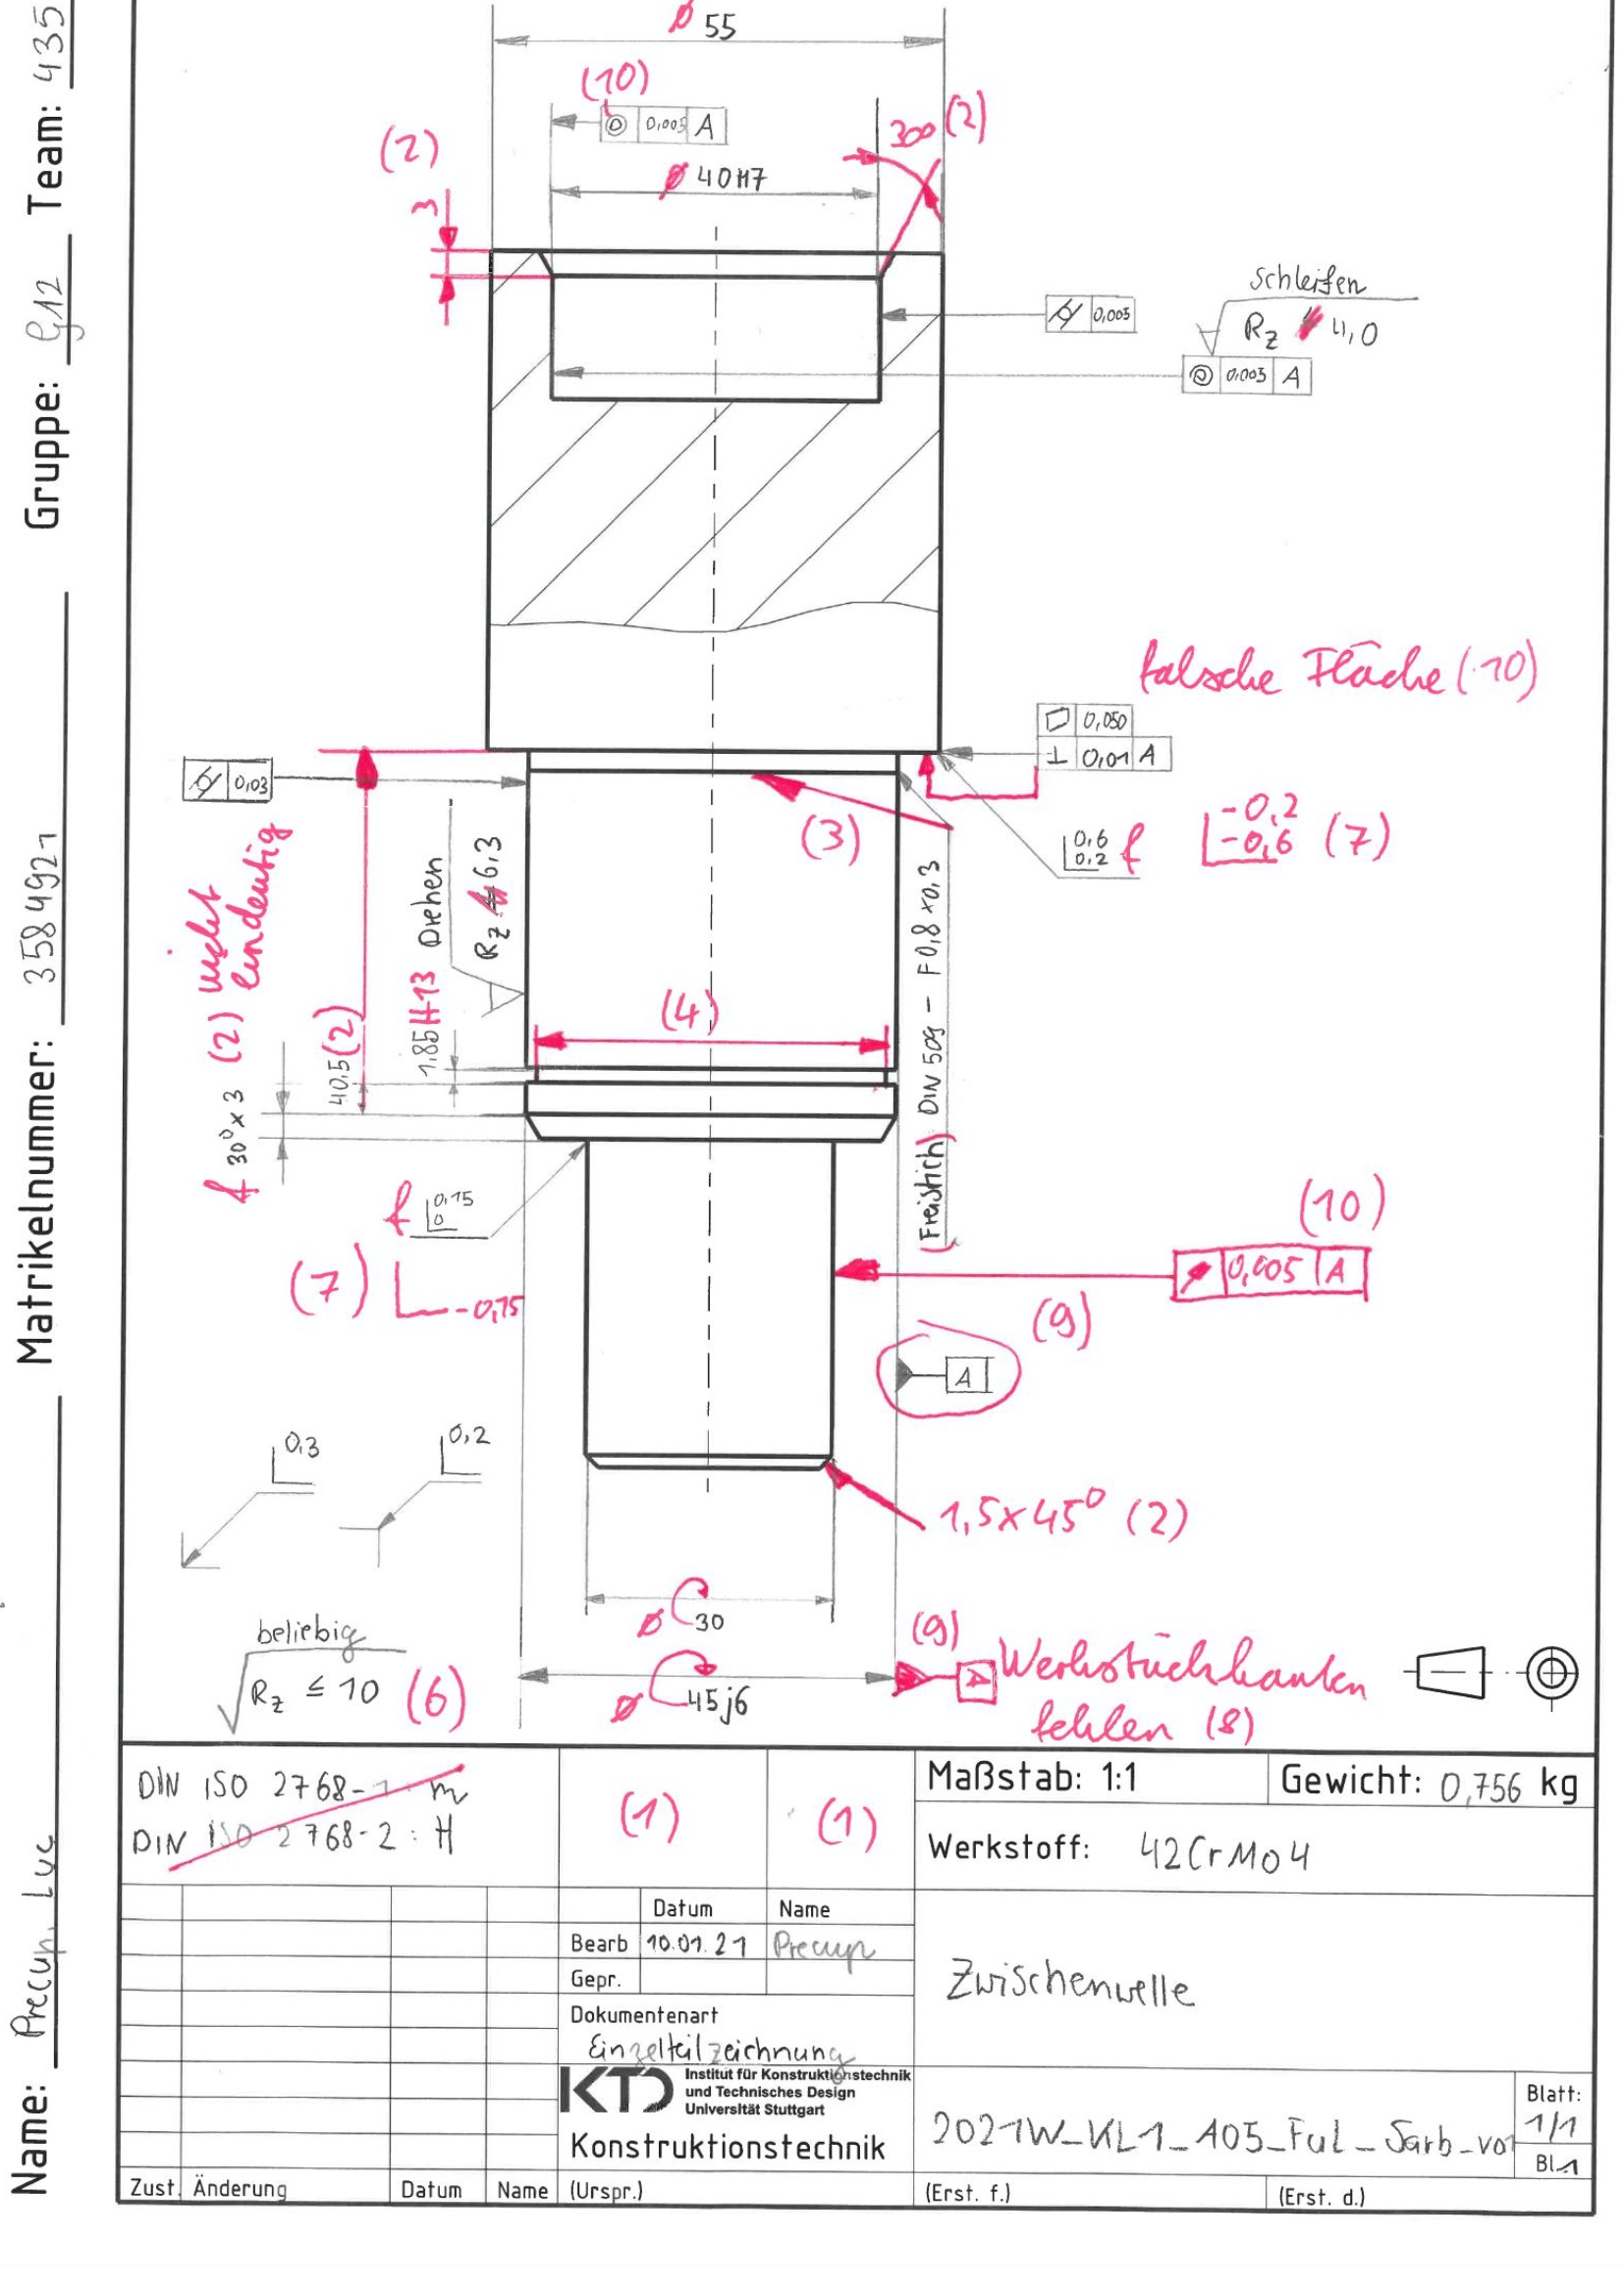 Name: Precup, Luc Matrikelnummer: 3584921 Gruppe: G12 Team: 435
⌀ 55
(10)
◎ 0,005 A
30° (2)
(2)
3
⌀ 40H7
⌭ 0,005
schleifen
Rz 4,0
◎ 0,005 A
falsche Fläche (10)
⏥ 0,050
⊥ 0,01 A
⌭ 0,03
(3)
0,6
0,2 f
-0,2
-0,6 (7)
f 30°x3 (2) nicht
eindeutig
40,5 (2)
1,85 H13
Drehen
Rz 6,3
(4)
(Freistich) DIN 509 - F0,8x0,3
f 0,15
0
(7) -0,15
(10)
↗ 0,005 A
(9)
A
0,3
0,2
1,5x45° (2)
⌀ 30
beliebig
Rz ≤ 10 (6)
⌀ 45j6
(9)
A
Werkstückkanten
fehlen (8)
DIN ISO 2768-1 m
DIN ISO 2768-2: H
(1) (1)
Maßstab: 1:1 Gewicht: 0,756 kg
Werkstoff: 42CrMo4
Datum Name
Bearb 10.01.21 Precup
Gepr.
Zwischenwelle
Dokumentenart
Einzelteilzeichnung
KTD Institut für Konstruktionstechnik
und Technisches Design
Universität Stuttgart
Konstruktionstechnik
2021W_KL1_A05_Ful_Sarb_vo1
Blatt:
1/1
Bl.1
Zust. Änderung Datum Name (Urspr.) (Erst. f.) (Erst. d.)